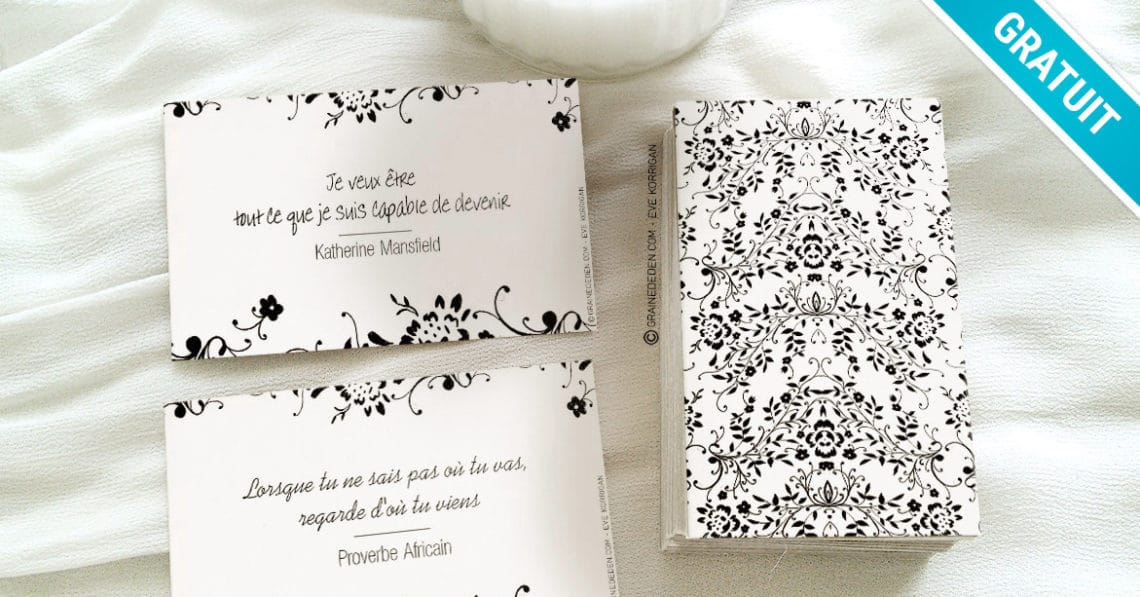 GRATUIT
Je veux être
tout ce que je suis capable de devenir
Katherine Mansfield
© GRAINEDEDEN.COM - EVE KORRIGAN
© GRAINEDEDEN.COM - EVE KORRIGAN
Lorsque tu ne sais pas où tu vas,
regarde d'où tu viens
Proverbe Africain
GRAINEDEDEN.COM - EVE KORRIGAN